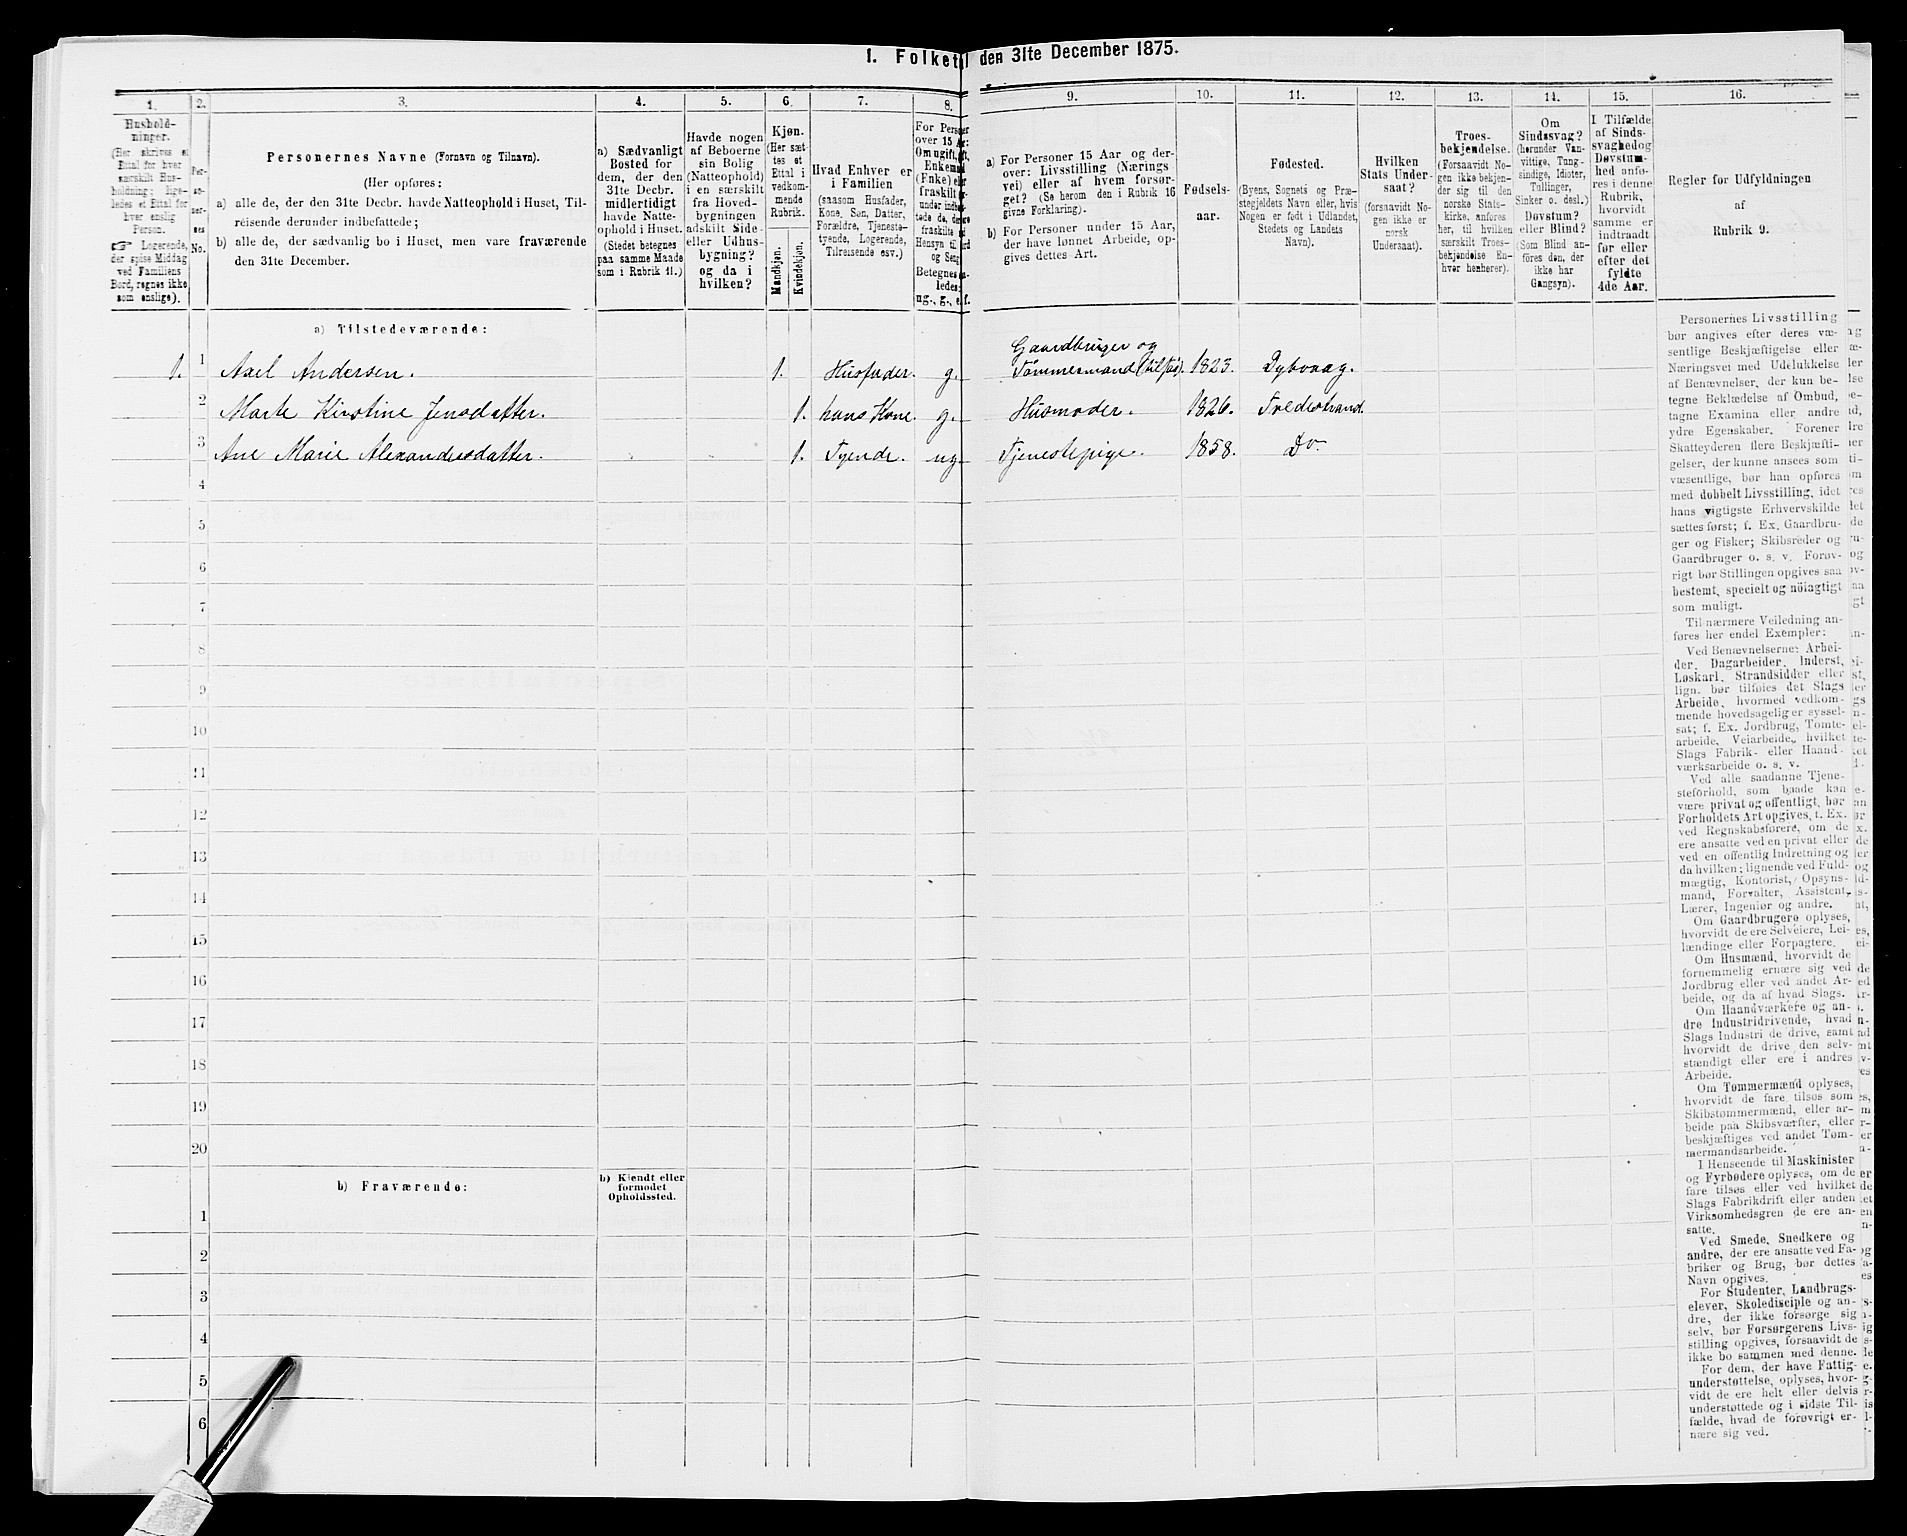 1. Folketal den 31te December 1875.
1.
Hushold-
ninger.
(Her skrives et
Ettal for hver
særskilt Hus-
holdning; lige-
ledes et Ettal for
hver enslig
Person.
☞ Logerende,
der spise Middag
ved Familiens
Bord, regnes ikke
som enslige).
2.
Per-
so-
ner-
nes
No.
3.
Personernes Navne (Fornavn og Tilnavn).
(Her opføres:
a) alle de, der den 31te Decbr. havde Natteophold i Huset, Til-
reisende derunder indbefattede;
b) alle de, der sædvanlig bo i Huset, men vare fraværende
den 31te December.
4.
a) Sædvanligt
Bosted for
dem, der den
31te Decbr.
midlertidigt
havde Natte-
ophold i Huset.
(Stedet betegnes
paa samme Maade
som i Rubrik 11.)
5.
Havde nogen
af Beboerne
sin Bolig
(Natteophold)
i en særskilt
fra Hoved-
bygningen
adskilt Side-
eller Udhus-
bygning?
og da i
hvilken?
6.
Kjøn.
(Her sæt-
tes et
Ettal i
vedkom-
mende
Rubrik.
Mandkjøn.
Kvindekjøn.
7.
Hvad Enhver er
i Familien
(saasom Husfader,
Kone, Søn, Datter,
Forældre, Tjeneste-
tyende, Logerende,
Tilreisende osv.)
8.
For Personer
over 15 Aar:
Om ugift, gift,
Enkemand
(Enke) eller
fraskilt
ug., g., e., f.
9.
a) For Personer 15 Aar og der-
over: Livsstilling (Nærings-
vei) eller af hvem forsør-
get? (Se herom den i Rubrik 16
givne Forklaring).
b) For Personer under 15 Aar,
der have lønnet Arbeide, op-
gives dettes Art.
10.
Fødsels-
aar.
11.
Fødested.
(Byens, Sognets og Præ-
stegjeldets Navn eller, hvis
Nogen er født i Udlandet,
Stedets og Landets
Navn).
12.
Hvilken
Stats Under-
saat?
(forsaavidt No-
gen ikke er
norsk
Undersaat).
13.
Troes-
bekjendelse.
(Forsaavidt No-
gen ikke bekjen-
der sig til den
norske Stats-
kirke, anføres
her, til hvilken
særskilt Troes-
bekjendelse En-
hver henhører).
14.
Om
Sindssvag?
(herunder Van-
vittige, Tung-
sindige, Idioter,
Tullinger,
Sinker o. desl.)
Døvstum?
eller Blind?
(Som Blind an-
føres den, der
ikke har
Gangsyn).
15.
I Tilfælde
af Sinds-
svaghed og
Døvstum-
hed anfø-
res i denne
Rubrik,
hvorvidt
samme er
indtraadt
før eller
efter det
fyldte
4de Aar.
16.
Regler for Udfyldningen
af
Rubrik 9.
a) Tilstedeværende:
1. 1 Axel Andersen. 1. Husfader. g. Gaardbruger og
Tømmermand (tilsøs). 1823. Dybvaag.
2 Marte Kirstine Jensdatter. 1. hans Kone. g. Husmoder. 1826. Tvedestrand.
3 Ane Marie Alexandersdatter. 1. Tyende. ug. Tjenestepige. 1858. Do.
4
5
6
7
8
9
10
11
12
13
14
15
16
17
18
19
20
b) Fraværende:
b) Kjendt eller
formodet
Opholdssted.
1
2
3
4
5
6
Personernes Livsstilling
bør angives efter deres væ-
sentlige Beskjæftigelse eller
Næringsvei med Udelukkelse
af Benævnelser, der kun be-
tegne Beklædelse af Ombud,
tagne Examina eller andre
ydre Egenskaber. Forener
Skatteyderen flere Beskjæfti-
gelser, der kunne ansees som
væsentlige, bør han opføres
med dobbelt Livsstilling, idet
hans vigtigste Erhvervskilde
sættes først; f. Ex. Gaardbru-
ger og Fisker; Skibsreder og
Gaardbruger o. s. v. Forøv-
rigt bør Stillingen opgives saa
bestemt, specielt og nöiagtigt
som muligt.
Til nærmere Veiledning an-
føres her endel Exempler:
Ved Benævnelserne: Arbei-
der, Dagarbeider, Inderst,
Løskarl, Strandsidder eller
lign. bør tilføies det Slags
Arbeide, hvormed vedkom-
mende hovedsagelig er syssel-
sat; f. Ex. Jordbrug, Tomte-
arbeide, Veiarbeide, hvilket
Slags Fabrik- eller Haand-
værksarbeide o. s. v.
Ved alle saadanne Tjene-
steforhold, som baade kan
være privat og offentligt, bør
Forholdets Art opgives, f. Ex.
ved Regnskabsførere, om de
ere ansatte ved en privat eller
ved en offentlig Indretning og
da hvilken; lignende ved Fuld-
mægtig, Kontorist, Opsyns-
mand, Forvalter, Assistent,
Lærer, Ingeniør og andre.
Om Gaardbrugere oplyses,
hvorvidt de ere Selveiere, Lei-
lændinge eller Forpagtere.
Om Husmænd, hvorvidt de
fornemmelig ernære sig ved
Jordbrug eller ved andet Ar-
beide, og da af hvad Slags.
Om Haandværkere og an-
dre Industridrivende, hvad
Slags Industri de drive, samt
hvorvidt de drive den selv-
stændigt eller ere i andres
Arbeide.
Om Tømmermænd oplyses,
hvorvidt de fare tilsøs som
Skibstømmermænd, eller ar-
beide paa Skibsværfter, eller
beskjæftiges ved andet Tøm-
mermandsarbeide.
I Henseende til Maskinister
og Fyrbødere oplyses, om de
fare tilsøs eller ved hvilket
Slags Fabrikdrift eller anden
Virksomhedsgren de ere an-
satte.
Ved Smede, Snedkere og
andre, der ere ansatte ved Fa-
briker og Brug, bør dettes
Navn opgives.
For Studenter, Landbrugs-
elever, Skoledisciple og an-
dre, der ikke forsørge sig
selv, bør Forsørgerens Livs-
stilling opgives, forsaavidt de
ikke bo sammen med denne.
For dem, der have Fattig-
understøttelse, oplyses, hvor-
vidt de ere helt eller delvis
understøttede og i sidste Til-
fælde, hvad de forøvrigt er-
nære sig ved.